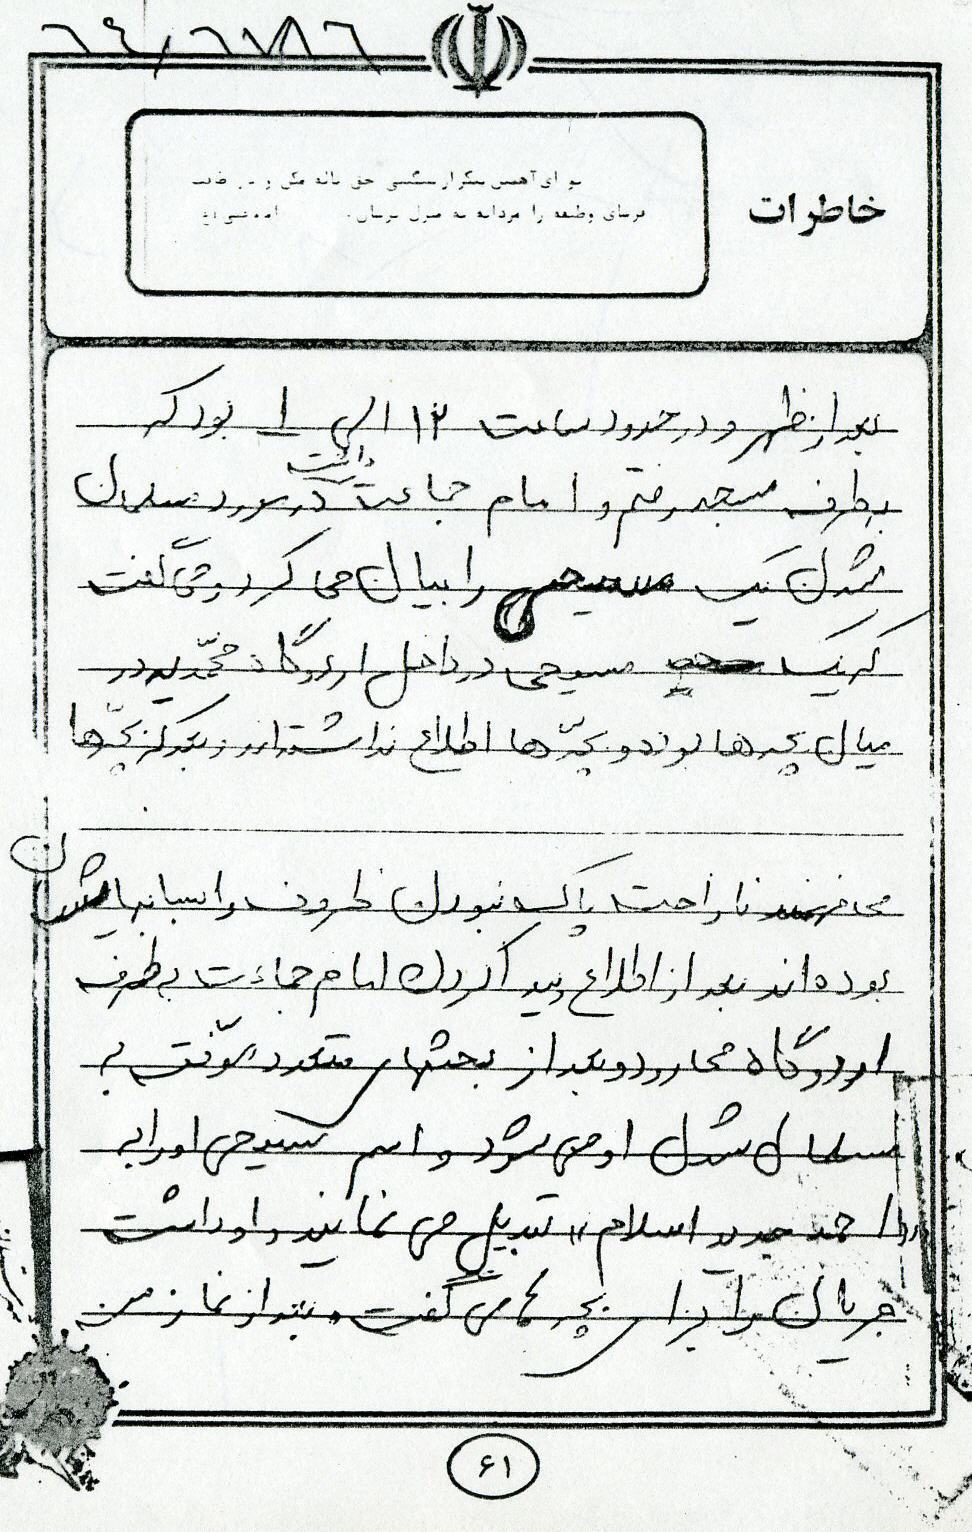 ۶۴/۶۷۸۶
خاطرات
بعد از ظهر و در حدود ساعت ۱۲ الی ۱ بود که
داشت
بطرف مسجد رفتم و امام جماعت در مورد مسلمان
شدن یک مسیحی را بیان می کرد و می گفت
که یک مسیحی در داخل اردوگاه محمدیه در
میان بچه ها بوده و بچّه ها اطلاع نداشته‌اند و بعد که بچّه‌ها
می فهمند ناراحت پاک نبودن ظروف و اسبابهایشان
بوده اند بعد از اطلاع پیدا کردن امام جماعت بطرف
اردوگاه می رود و بعد از بحثهای متعدد موّفق به
مسلمان شدن او می شود و اسم مسیحی او را به
احمد جدید اسلام" تبدیل می نمایند و او داشت
جریان را برای بچه ها می گفت و بعد از نماز من
۶۱